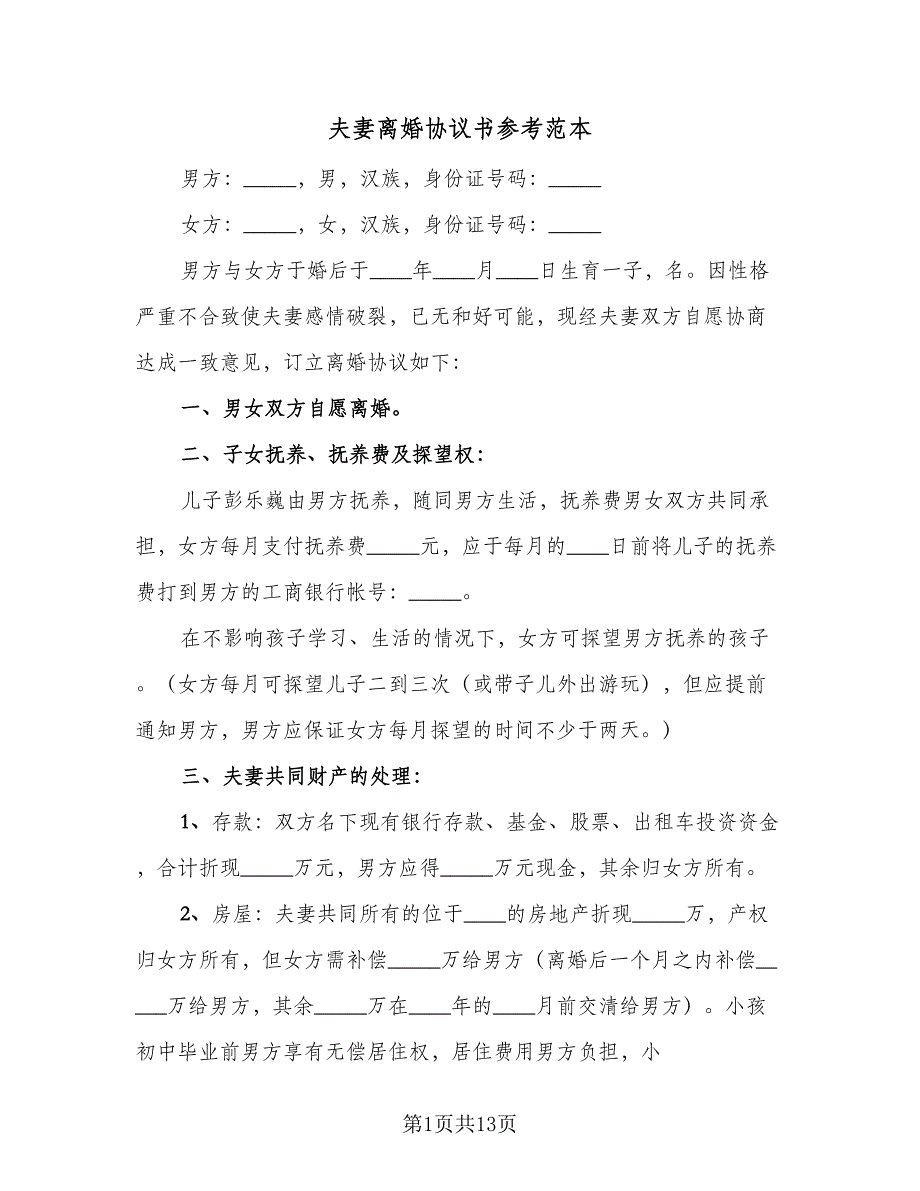 夫妻离婚协议书参考范本
男方：_____，男，汉族，身份证号码：_____
女方：_____，女，汉族，身份证号码：_____
男方与女方于婚后于____年____月____日生育一子，名。因性格
严重不合致使夫妻感情破裂，已无和好可能，现经夫妻双方自愿协商
达成一致意见，订立离婚协议如下：
一、男女双方自愿离婚。
二、子女抚养、抚养费及探望权：
儿子彭乐巍由男方抚养，随同男方生活，抚养费男女双方共同承
担，女方每月支付抚养费_____元，应于每月的____日前将儿子的抚养
费打到男方的工商银行帐号：_____。
在不影响孩子学习、生活的情况下，女方可探望男方抚养的孩子
。（女方每月可探望儿子二到三次（或带子儿外出游玩），但应提前
通知男方，男方应保证女方每月探望的时间不少于两天。）
三、夫妻共同财产的处理：
1、存款：双方名下现有银行存款、基金、股票、出租车投资资金
，合计折现_____万元，男方应得_____万元现金，其余归女方所有。
2、房屋：夫妻共同所有的位于____的房地产折现_____万，产权
归女方所有，但女方需补偿_____万给男方（离婚后一个月之内补偿__
___万给男方，其余_____万在____年的____月前交清给男方）。小孩
初中毕业前男方享有无偿居住权，居住费用男方负担，小
第1页共13页